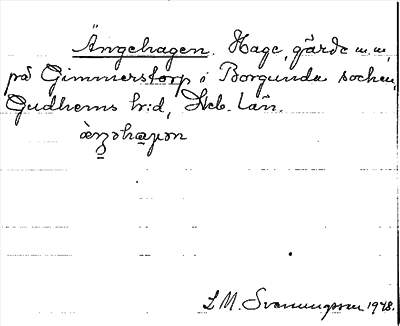 Ängehagen. Hage, gärde m.m,
på Gimmerstorp i Borgunda socken,
Gudhems hr:d, Skb. län.
L M. Svenungsson 1948.